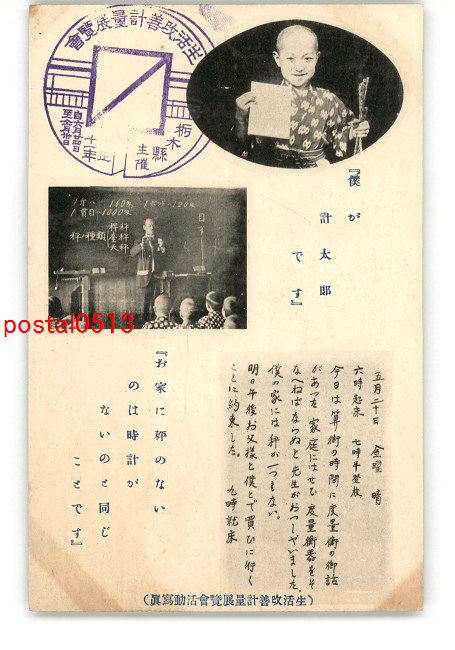 生活改善計量展覽會
栃木縣
主催
『僕が
計太郎
です』
1斤ハ 160匁
1貫目ハ1000匁
秤ノ種類
postal0513
五月二十日 金曜 晴
六時起床 七時半登校
今日は算術の時間に度量衡の御話
があつた 家庭にはぜひ度量衡器をそ
なへねばならぬと先生がおつしやいました。
僕の家には秤が一つもない。
明日午後お父様と僕とで買ひに行く
ことに約束した。 九時就床
『お家に秤のない
のは時計が
ないのと同じ
ことです』
(生活改善計量展覽會活動寫眞)